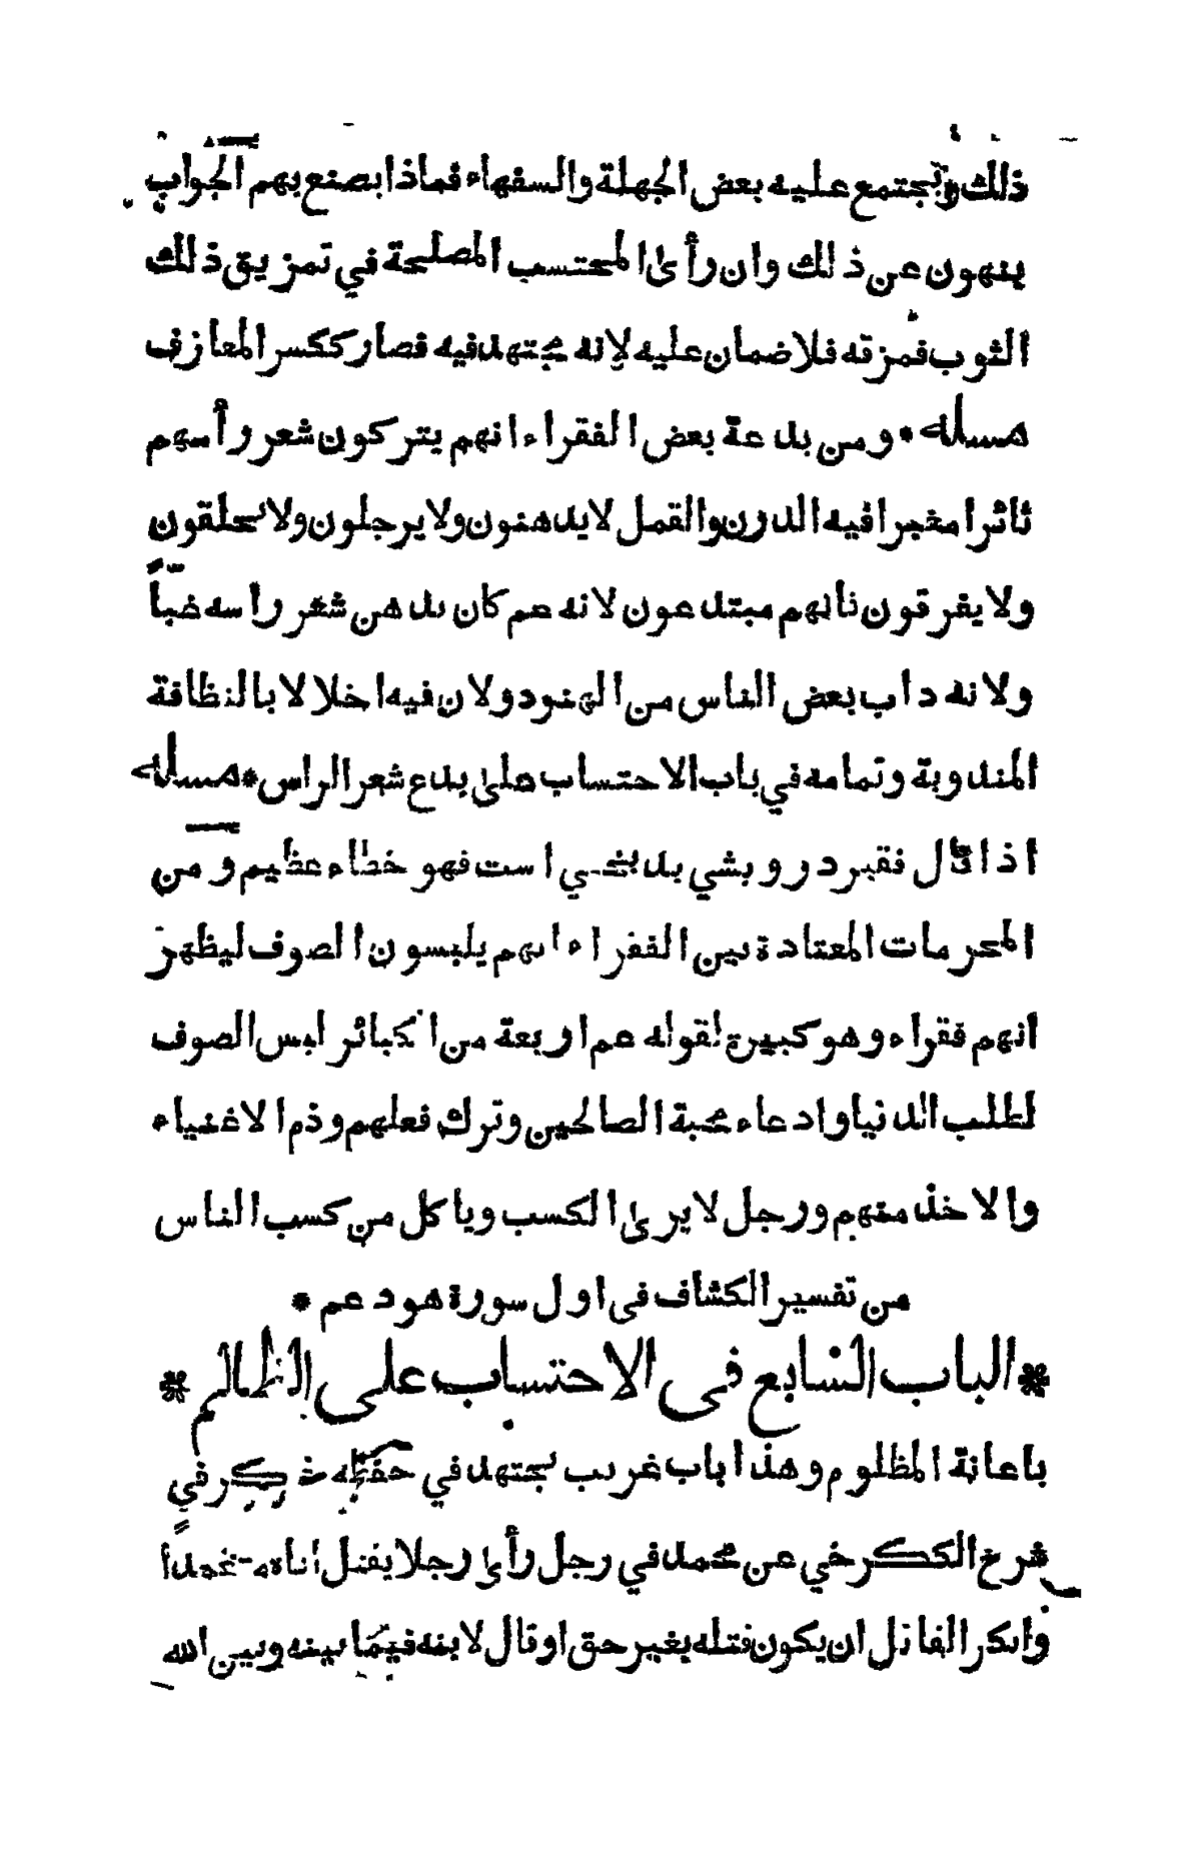 ذلك وتجتمع عليه بعض الجهلة والسفهاء فماذا يصنع بهم الجواب
ينهون عن ذلك وان رأى المحتسب المصلحة في تمزيق ذلك
الثوب فمزقه فلا ضمان عليه لانه مجتهد فيه فصار ككسر المعازف
مسئله * ومن بدعة بعض الفقراء انهم يتركون شعر رأسهم
ثائرا مغبرا فيه الدرن والقمل لا يدهنون ولا يرجلون ولا يحلقون
ولا يفرقون فانهم مبتدعون لانه عم كان يدهن شعر راسه غبّاً
ولانه داب بعض الناس من الهنود ولان فيه اخلالا بالنظافة
المندوبة وتمامه في باب الاحتساب على بدع شعر الراس * مسئله
اذا قال فقير درويشي بدبختي است فهو خطاء عظيم ومن
المحرمات المعتادة بين الفقراء انهم يلبسون الصوف ليظهر
انهم فقراء وهو كبيرة لقوله عم اربعة من الكبائر لبس الصوف
لطلب الدنيا وادعاء محبة الصالحين وترك فعلهم وذم الاغنياء
والاخذ منهم ورجل لا يرى الكسب وياكل من كسب الناس
من تفسير الكشاف فى اول سورة هود عم *
* الباب السابع فى الاحتساب على الظالم *
باعانة المظلوم وهذا باب غريب يجتهد في حفظه ذكر في
شرح الكرخي عن محمد في رجل رأى رجلا يقتل اباه عمداً
وانكر القاتل ان يكون قتله بغير حق او قال لابنه فيما بينه وبين الله